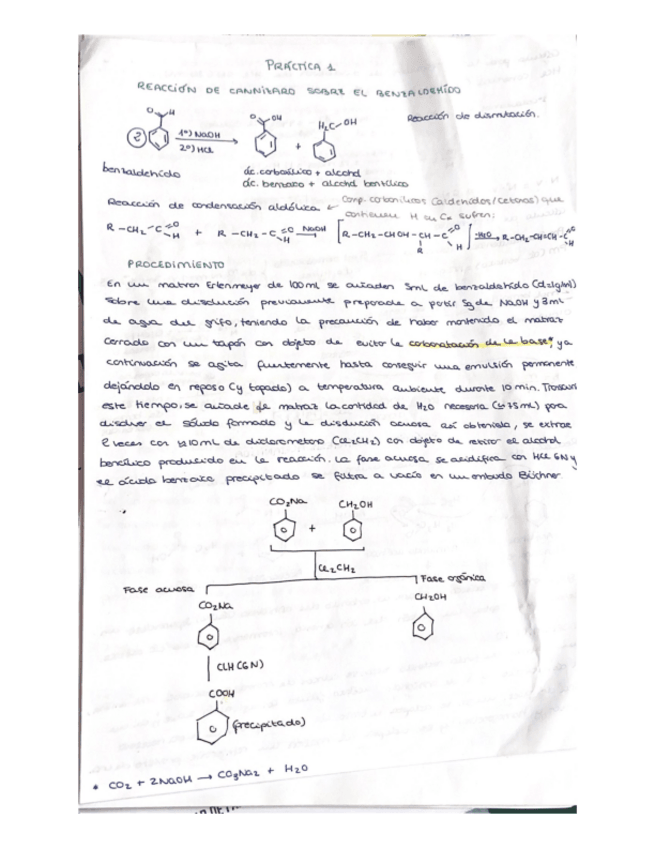 PRÁCTICA 1
REACCIÓN DE CANNIZARO SOBRE EL BENZALDEHÍDO
Reacción de dismutación.
O H
2 1º) NaOH
2º) HCl
O OH + H₂C OH
benzaldehído
ác. carboxílico + alcohol
ác. benzoico + alcohol bencílico
Reacción de condensación aldólica ← Comp. carbonílicos (aldehídos/cetonas) que
contienen H en Cα sufren:
R-CH₂-C=O H + R-CH₂-C=O H NaOH → [R-CH₂-CHOH-CH-C=O H R] -H₂O → R-CH₂-CH=CH-C=O H
PROCEDIMIENTO
En un matraz Erlenmeyer de 100ml se añaden 5ml de benzaldehído (d:1g/ml)
sobre una disolución previamente preparada a partir 5g de NaOH y 3ml
de agua del grifo, teniendo la precaución de haber mantenido el matraz
cerrado con un tapón con objeto de evitar la carbonatación de la base*, y a
continuación se agita fuertemente hasta conseguir una emulsión permanente
dejándolo en reposo (y tapado) a temperatura ambiente durante 10 min.
este tiempo, se añade matraz la cantidad de H₂O necesaria (≈75ml) para
disolver el sólido formado y la disolución acuosa así obtenida, se extrae
2 veces con 10ml de diclorometano (Cl₂CH₂) con objeto de retirar el alcohol
bencílico producido en la reacción. La fase acuosa se acidifica con HCl 6N y
el ácido benzoico precipitado se filtra a vacío en un embudo Büchner.
CO₂Na + CH₂OH
Cl₂CH₂
Fase acuosa Fase orgánica
CO₂Na CH₂OH
ClH (6N)
COOH
(precipitado)
* CO₂ + 2NaOH → CO₃Na₂ + H₂O